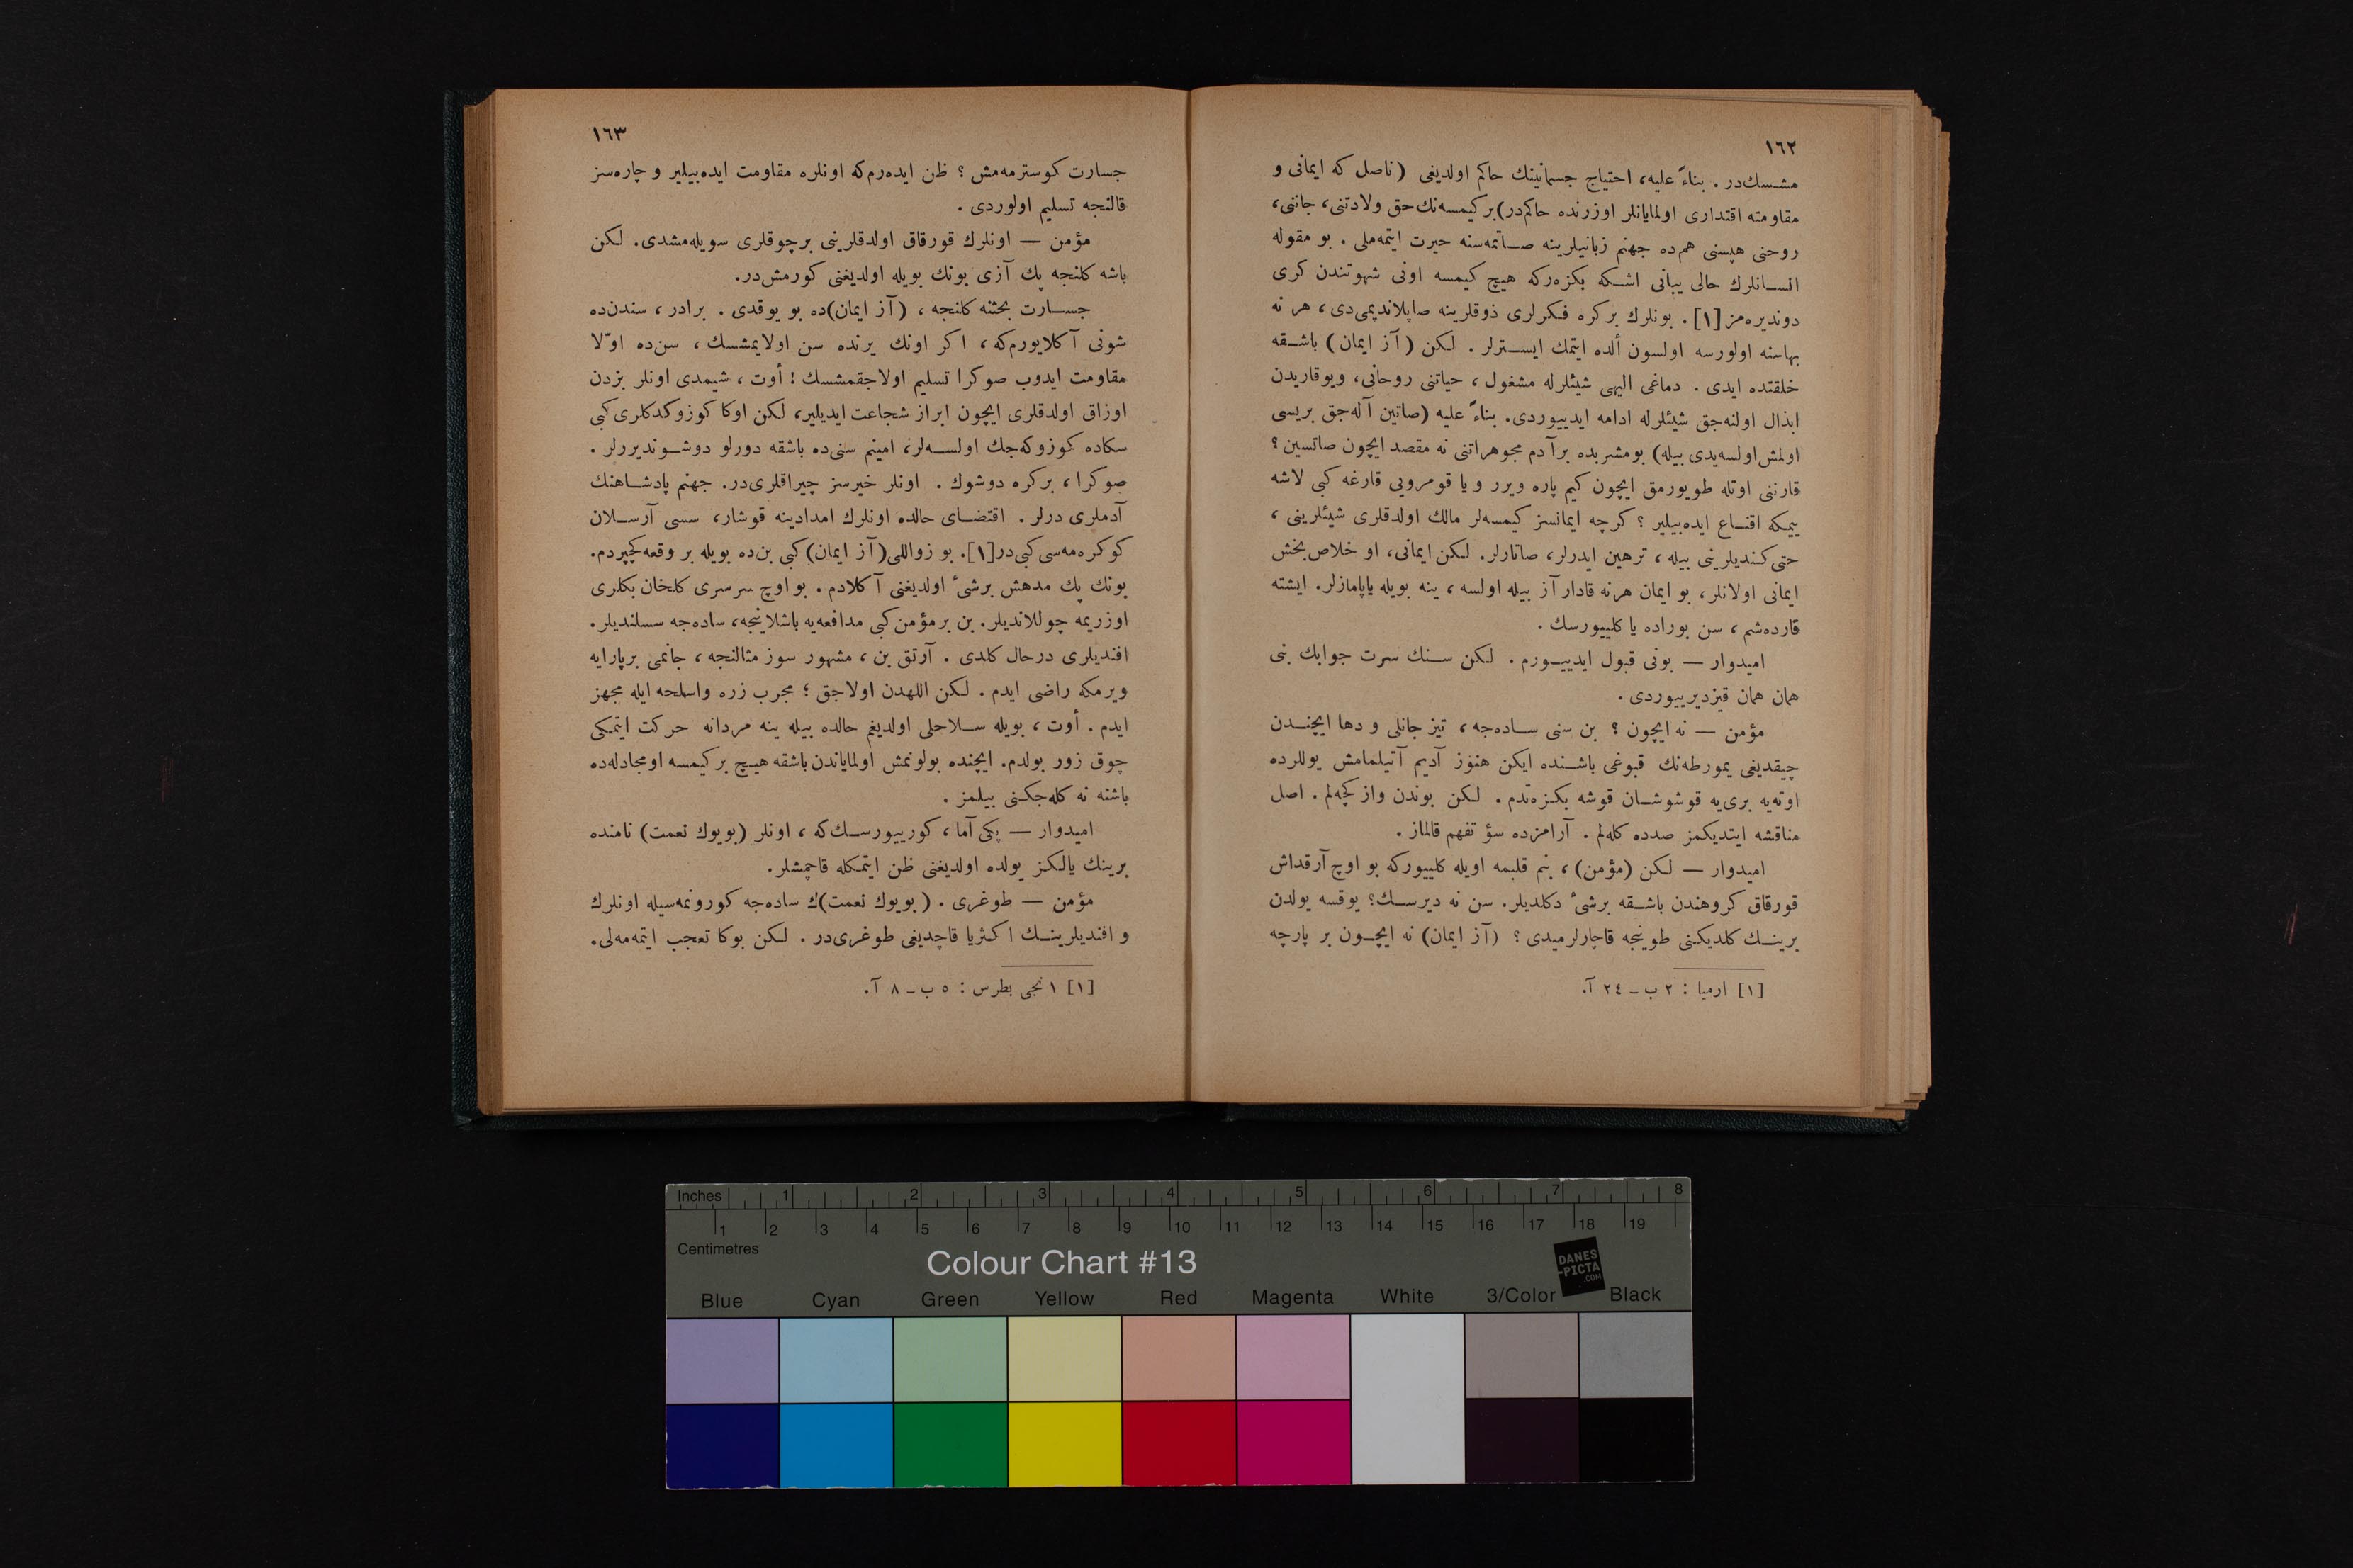 ١٦٢
مشسك‌در . بناءً عليه، احتياج جسمانينك حاكم اولديغى (ناصل كه ايمانى و
مقاومته اقتدارى اولمايانلر اوزرنده حاكم‌در) بر كيمسه‌نك حق ولادتنى، جاننى،
روحنى هپسنى هم‌ده جهنم زبانيلرينه صاتمه‌سنه حيرت ايتمه‌ملى . بو مقوله
انسانلرك حالى يبانى اشكه بكزه‌ركه هيچ كيمسه اونى شهوتندن كرى
دونديره‌مز [١]. بونلرك بر كره فكرلرى ذوقلرينه صاپلانديمى‌دى، هر نه
بهاسنه اولورسه اولسون ألده ايتمك ايسترلر . لكن (آز ايمان) باشقه
خلقتده ايدى . دماغى الهى شيئلرله مشغول، حياتنى روحانى، ويوقاريدن
ابذال اولنه‌جق شيئلرله ادامه ايدييوردى. بناءً عليه (صاتين آله‌جق بريسى
اولمش اولسه‌يدى بيله) بومشربده برآدم مجوهراتنى نه مقصد ايچون صاتسين؟
قارننى اوتله طويورمق ايچون كيم پاره ويرر و يا قومرويى قارغه كبى لاشه
ييمكه اقناع ايده‌بيلير؟ كرچه ايمانسز كيمسه‌لر مالك اولدقلرى شيئلرينى،
حتى كنديلرينى بيله، ترهين ايدرلر، صاتارلر. لكن ايمانى، او خلاص بخش
ايمانى اولانلر، بو ايمان هرنه قادار آز بيله اولسه، ينه بويله ياپامازلر. ايشته
قارده‌شم، سن بوراده ياكلييورسك .
اميدوار — بونى قبول ايدييورم . لكن سنك سرت جوابك بنى
همان همان قيزديرييوردى .
مؤمن — نه ايچون؟ بن سنى ساده‌جه، تيز جانلى و دها ايچندن
چيقديغى يمورطه‌نك قبوغى باشنده ايكن هنوز آديم آتيلمامش يوللرده
اوته‌يه برى‌يه قوشوشان قوشه بكزه‌تدم. لكن بوندن واز كچه‌لم . اصل
مناقشه ايتديكمز صدده كله‌لم . آرامزده سؤ تفهم قالماز .
اميدوار — لكن (مؤمن)، بنم قلبمه اويله كلييوركه بو اوچ آرقداش
قورقاق كروهندن باشقه برشئ دكلديلر. سن نه ديرسك؟ يوقسه يولدن
برينك كلديكنى طوينجه قاچارلرميدى؟ (آز ايمان) نه ايچون بر پارچه
[١] ارميا : ٢ ب ـ ٢٤ آ.
١٦٣
جسارت كوسترمه‌مش؟ ظن ايده‌رم‌كه اونلره مقاومت ايده‌بيلير و چاره‌سز
قالنجه تسليم اولوردى .
مؤمن — اونلرك قورقاق اولدقلرينى برچوقلرى سويله‌مشدى. لكن
باشه كلنجه پك آزى بونك بويله اولديغنى كورمش‌در.
جسارت بحثنه كلنجه، (آز ايمان)ده بو يوقدى . برادر، سندن‌ده
شونى آكلايورم‌كه، اكر اونك يرنده سن اولايمشسك، سن‌ده اوّلا
مقاومت ايدوب صوكرا تسليم اولاجقمشسك! أوت، شيمدى اونلر بزدن
اوزاق اولدقلرى ايچون ابراز شجاعت ايديلير، لكن اوكا كوزوكدكلرى كبى
سكاده كوزوكه‌جك اولسه‌لر، امينم سنى‌ده باشقه دورلو دوشونديررلر .
صوكرا، بركره دوشوك . اونلر خيرسز چيراقلرى‌در. جهنم پادشاهنك
آدملرى درلر . اقتضاى حالده اونلرك امدادينه قوشار، سسى آرسلان
كوكره‌مه‌سى كبى‌در[١]. بو زواللى (آز ايمان) كبى بن‌ده بويله بر وقعه كچيردم.
بونك پك مدهش برشئ اولديغنى آكلادم . بو اوچ سرسرى كلخان بكلرى
اوزريمه چوللانديلر. بن بر مؤمن كبى مدافعه‌يه باشلاينجه، ساده‌جه سسلنديلر.
افنديلرى درحال كلدى . آرتق بن، مشهور سوز مثالنجه، جانمى برپارايه
ويرمكه راضى ايدم . لكن اللهدن اولاجق؛ مجرب زره واسلحه ايله مجهز
ايدم . أوت، بويله سلاحلى اولديغم حالده بيله ينه مردانه حركت ايتمكى
چوق زور بولدم. ايچنده بولونمش اولماياندن باشقه هيچ بر كيمسه اومجادله‌ده
باشنه نه كله‌جكنى بيلمز .
اميدوار — پكى آما، كورييورسك‌كه، اونلر (بويوك نعمت) نامنده
برينك يالكز يولده اولديغنى ظن ايتمكله قاچمشلر.
مؤمن — طوغرى . (بويوك نعمت)ك ساده‌جه كورونمه‌سيله اونلرك
و افنديلرينك اكثريا قاچديغى طوغرى‌در . لكن بوكا تعجب ايتمه‌ملى.
[١] ١ نجى بطرس : ٥ ب ـ ٨ آ.
Inches 1 2 3 4 5 6 7 8
1 2 3 4 5 6 7 8 9 10 11 12 13 14 15 16 17 18 19
Centimetres
Colour Chart #13
DANES
-PICTA
.COM
Blue Cyan Green Yellow Red Magenta White 3/Color Black